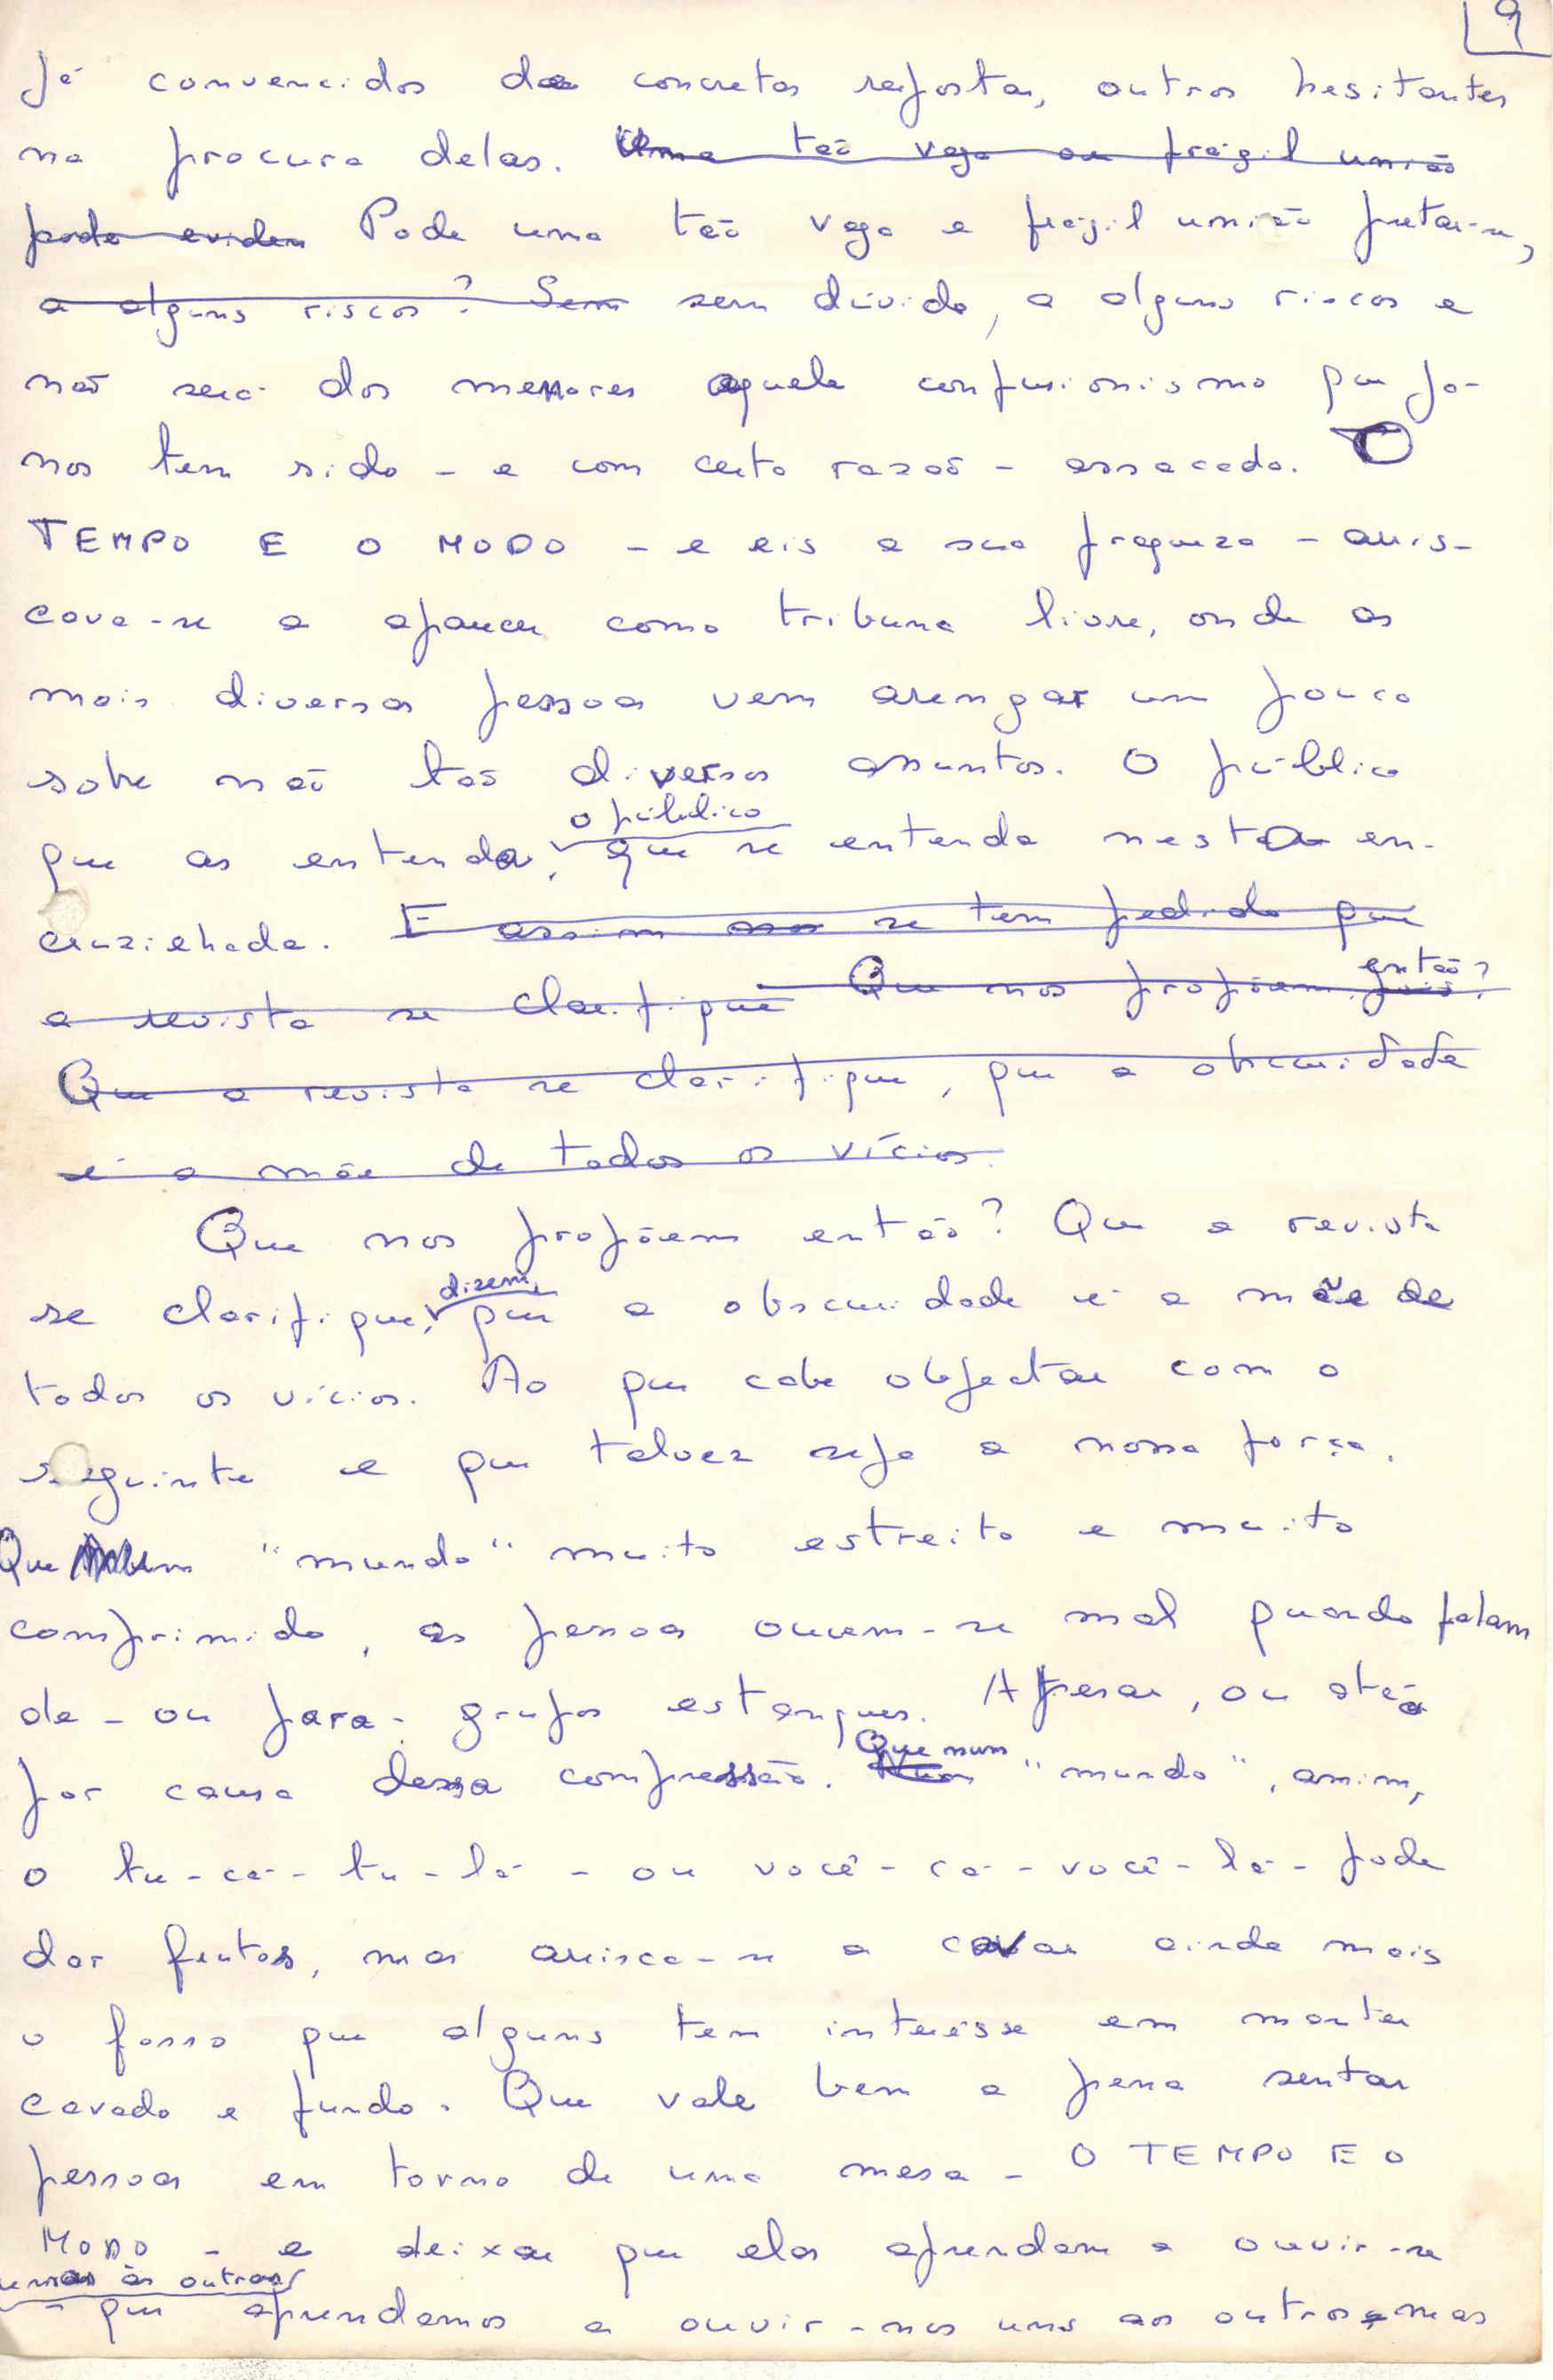 9
já convencidos de concretas respostas, outros hesitantes
na procura delas. Uma tão vaga ou frágil união
pode eviden Pode uma tão vaga e frágil união prestar-se,
a alguns riscos? Sem sem dúvida, a alguns riscos e
não será dos menores aquele confusionismo que já-
nos tem sido - e com certa razão - assacado. O
TEMPO E O MODO - e eis a sua fraqueza - arris-
cava-se a aparecer como tribuna livre, onde as
mais diversas pessoas vem arengar um pouco
sobre não tão diversos assuntos. O público
o público
que as entenda, que se entenda nesta en-
cruzilhada. E assim se tem pedido que
então?
a revista se clarifique Que nos propõem, pois?
Que a revista se clarifique, que a obscuridade
é a mãe de todos os vícios.
Que nos propõem então? Que a revista
dizem,
se clarifique, que a obscuridade é a mãe de
todos os vícios. Ao que cabe objectar com o
seguinte e que talvez seja a nossa força.
Que num "mundo" muito estreito e muito
comprimido, as pessoas ouvem-se mal quando falam
de - ou para - grupos estanques. Apesar, ou até
Que num
por causa dessa compressão. Num "mundo", assim,
o tu-cá-tu-lá - ou você-cá-você-lá - pode
dar frutos, mas arrisca-se a cavar ainda mais
o fosso que alguns tem interêsse em manter
cavado e fundo. Que vale bem a pena sentar
pessoas em torno de uma mesa - O TEMPO E O
MODO - e deixar que elas aprendam a ouvir-se
umas às outras
- que aprendamos a ouvir-nos uns aos outros, mas